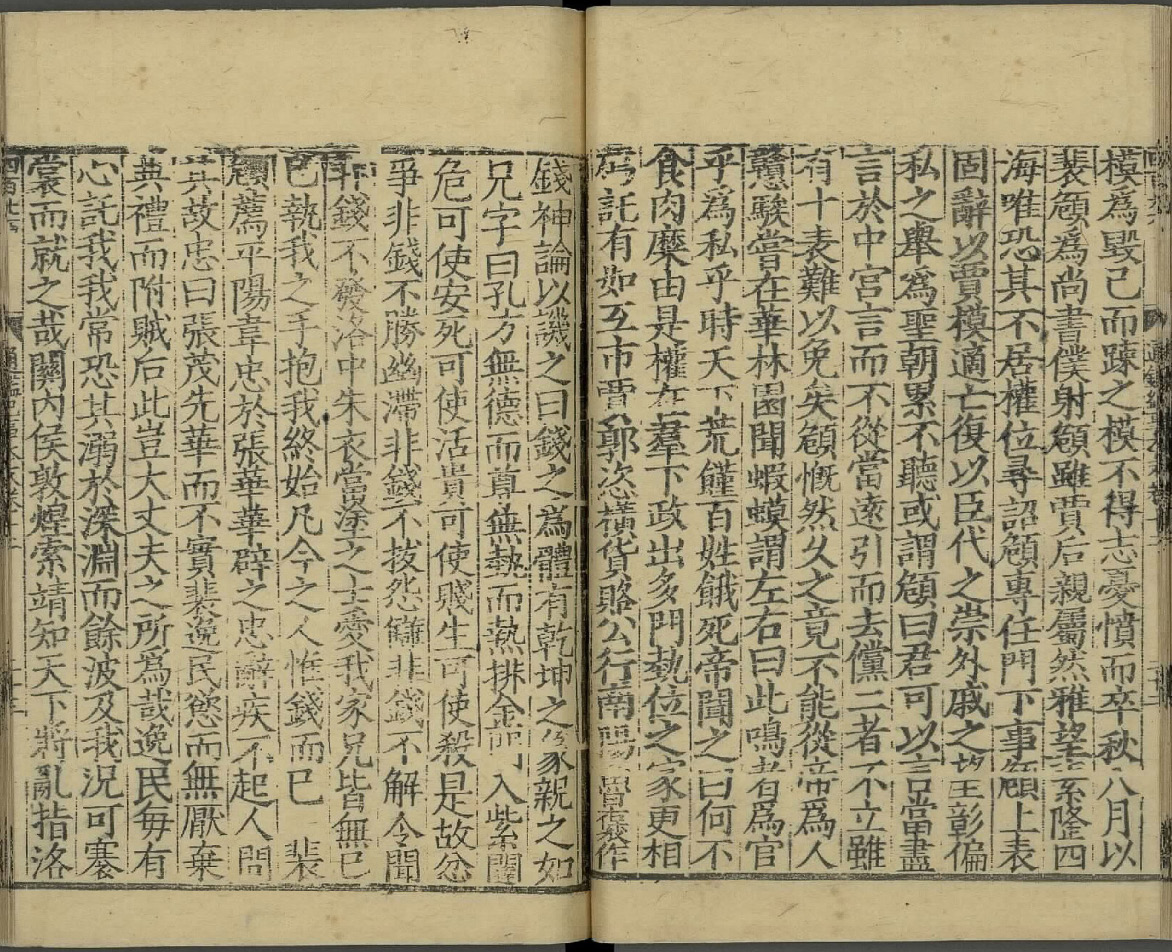 模爲毀己而踈之模不得志憂憤而卒秋八月以
裴頠爲尚書僕射頠雖賈后親屬然雅望素隆四
海唯恐其不居權位尋詔頠專任門下事頠上表
固辭以賈模適亡復以臣代之崇外戚之望彰偏
私之舉爲聖朝累不聽或謂頠曰君可以言當盡
言於中宮言而不從當遠引而去儻二者不立雖
有十表難以免矣頠慨然久之竟不能從帝爲人
戇騃嘗在華林園聞蝦蟆謂左右曰此鳴者爲官
乎爲私乎時天下荒饉百姓餓死帝聞之曰何不
食肉糜由是權在羣下政出多門勢位之家更相
薦託有如互市賈郭恣橫貨賂公行南陽魯襃作
錢神論以譏之曰錢之爲體有乾坤之象親之如
兄字曰孔方無德而尊無勢而熱排金門入紫闥
危可使安死可使活貴可使賤生可使殺是故忿
爭非錢不勝幽滯非錢不拔怨讎非錢不解令聞
非錢不發洛中朱衣當塗之士愛我家兄皆無已
已執我之手抱我終始凡今之人惟錢而已 裴
頠薦平陽韋忠於張華華辟之忠辭疾不起人問
其故忠曰張茂先華而不實裴逸民慾而無厭棄
典禮而附賊后此豈大丈夫之所爲哉逸民每有
心託我我常恐其溺於深淵而餘波及我況可褰
裳而就之哉關內侯敦煌索靖知天下將亂指洛